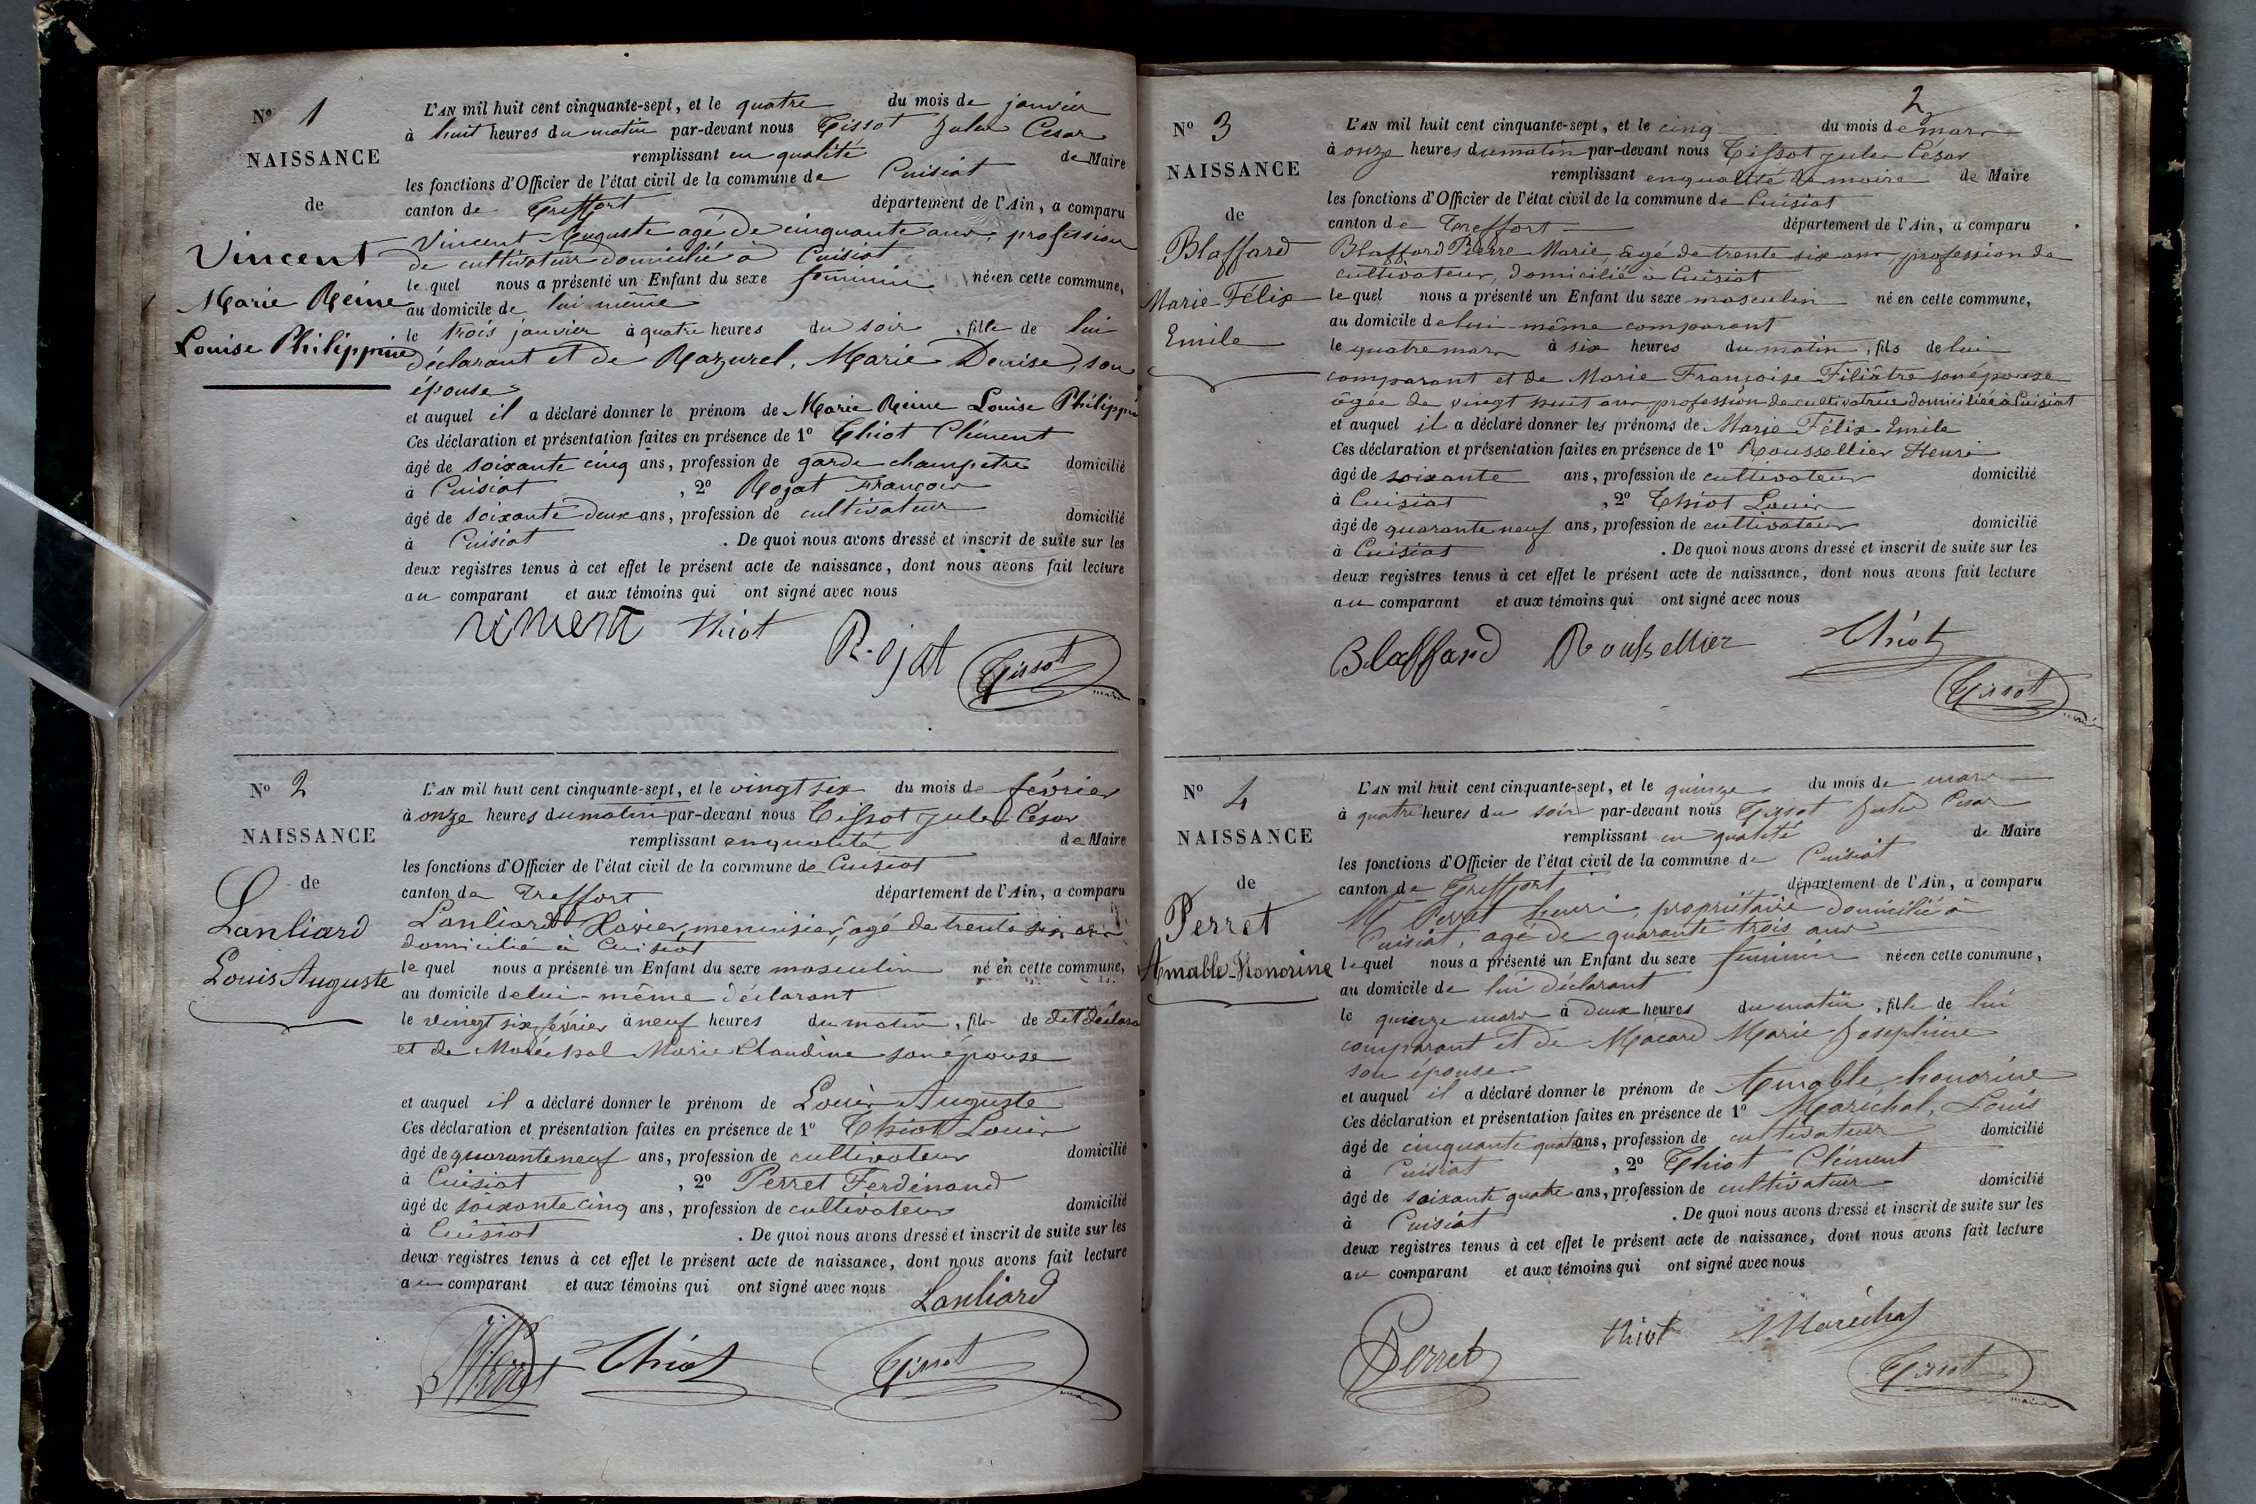 N° 1
NAISSANCE
de
Vincent
Marie Reine
Louise Philippine
L'AN mil huit cent cinquante-sept, et le quatre du mois de janvier
à huit heures du matin par-devant nous Tissot Jules César
remplissant en qualité de Maire
les fonctions d'Officier de l'état civil de la commune de Cuisiat
canton de Treffort département de l'Ain, a comparu
Vincent Auguste agé de cinquante ans, profession
de cultivateur domicilié à Cuisiat
le quel nous a présenté un Enfant du sexe féminin née en cette commune,
au domicile de lui même
le trois janvier à quatre heures du soir, fille de lui
déclarant et de Razurel, Marie Denise, son
épouse
et auquel il a déclaré donner le prénom de Marie Reine Louise Philippine
Ces déclaration et présentation faites en présence de 1° Thiot Clément
âgé de soixante cinq ans, profession de garde champetre domicilié
à Cuisiat, 2° Rojat François
âgé de soixante deux ans, profession de cultivateur domicilié
à Cuisiat. De quoi nous avons dressé et inscrit de suite sur les
deux registres tenus à cet effet le présent acte de naissance, dont nous avons fait lecture
au comparant et aux témoins qui ont signé avec nous
vincent thiot Rojat Tissot maire
N° 2
NAISSANCE
de
Lanliard
Louis Auguste
L'AN mil huit cent cinquante-sept, et le vingt six du mois de février
à onze heures du matin par-devant nous Tissot Jules César
remplissant en qualité de Maire
les fonctions d'Officier de l'état civil de la commune de Cuisiat
canton de Treffort département de l'Ain, a comparu
Lanliard Xavier, menuisier, agé de trente six ans
domicilié à Cuisiat
le quel nous a présenté un Enfant du sexe masculin né en cette commune,
au domicile de lui-même déclarant
le vingt six février à neuf heures du matin, fils de dit déclarant
et de Maréchal Marie Claudine son épouse
et auquel il a déclaré donner le prénom de Louis Auguste
Ces déclaration et présentation faites en présence de 1° Thiot Louis
âgé de quarante neuf ans, profession de cultivateur domicilié
à Cuisiat, 2° Perret Ferdinand
âgé de soixante cinq ans, profession de cultivateur domicilié
à Cuisiat. De quoi nous avons dressé et inscrit de suite sur les
deux registres tenus à cet effet le présent acte de naissance, dont nous avons fait lecture
au comparant et aux témoins qui ont signé avec nous Lanliard
Perret Thiot Tissot maire
2
N° 3
NAISSANCE
de
Blaffard
Marie Félix
Emile
L'AN mil huit cent cinquante-sept, et le cinq du mois de mars
à onze heures du matin par-devant nous Tissot Jules César
remplissant en qualité de maire de Maire
les fonctions d'Officier de l'état civil de la commune de Cuisiat
canton de Treffort département de l'Ain, a comparu
Blaffard Pierre Marie, agé de trente six ans, profession de
cultivateur, domicilié à Cuisiat
le quel nous a présenté un Enfant du sexe masculin né en cette commune,
au domicile de lui-même comparant
le quatre mars à six heures du matin, fils de lui
comparant et de Marie Françoise Filiâtre son épouse
agée de vingt huit ans profession de cultivatrice domiciliée à Cuisiat
et auquel il a déclaré donner les prénoms de Marie Félix Emile
Ces déclaration et présentation faites en présence de 1° Roussellier Henri
âgé de soixante ans, profession de cultivateur domicilié
à Cuisiat, 2° Thiot Louis
âgé de quarante neuf ans, profession de cultivateur domicilié
à Cuisiat. De quoi nous avons dressé et inscrit de suite sur les
deux registres tenus à cet effet le présent acte de naissance, dont nous avons fait lecture
au comparant et aux témoins qui ont signé avec nous
Blaffard Roussellier Thiot
Tissot maire
N° 4
NAISSANCE
de
Perret
Amable-Honorine
L'AN mil huit cent cinquante-sept, et le quinze du mois de mars
à quatre heures du soir par-devant nous Tissot Jules César
remplissant en qualité de Maire
les fonctions d'Officier de l'état civil de la commune de Cuisiat
canton de Treffort département de l'Ain, a comparu
Mr Perret henri, propriétaire domicilié à
Cuisiat, agé de quarante trois ans
lequel nous a présenté un Enfant du sexe féminin née en cette commune,
au domicile de lui déclarant
le quinze mars à deux heures du matin, fille de lui
comparant et de Macard Marie Josephine
son épouse
et auquel il a déclaré donner le prénom de Amable honorine
Ces déclaration et présentation faites en présence de 1° Maréchal, Louis
âgé de cinquante quatre ans, profession de cultivateur domicilié
à Cuisiat, 2° Thiot Clément
âgé de soixante quatre ans, profession de cultivateur domicilié
à Cuisiat. De quoi nous avons dressé et inscrit de suite sur les
deux registres tenus à cet effet le présent acte de naissance, dont nous avons fait lecture
au comparant et aux témoins qui ont signé avec nous
Perret thiot Maréchal
Tissot maire